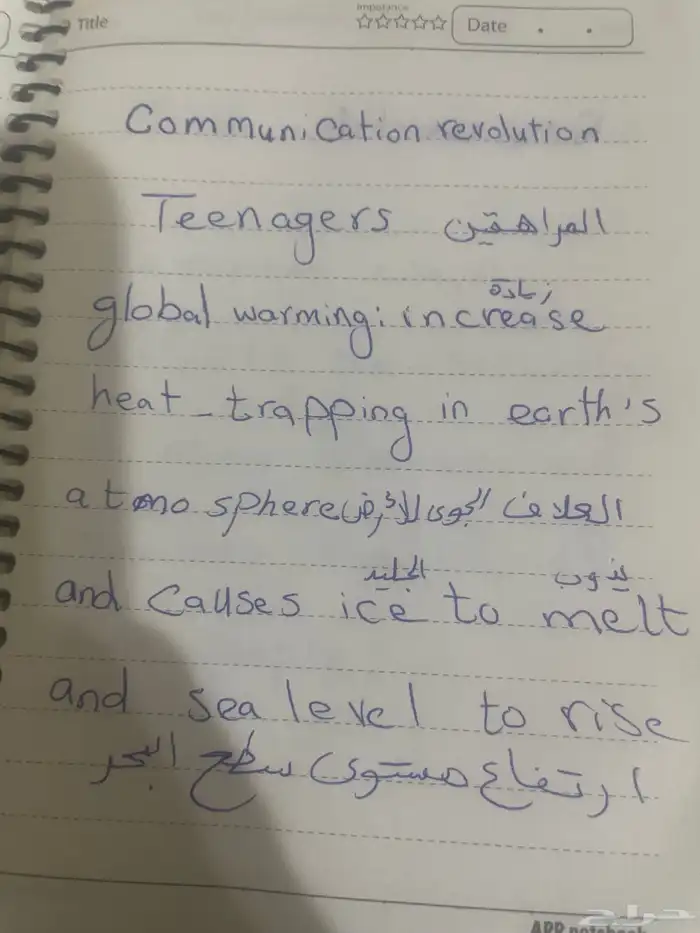 Title
Importance
Date . .
Communication revolution
Teenagers المراهقين
زيادة
global warming: increase
heat_trapping in earth's
atmosphere الغلاف الجوى للأرض
الجليد يذوب
and causes ice to melt
and sea level to rise
ارتفاع مستوى سطح البحر
APP notebook
حراج